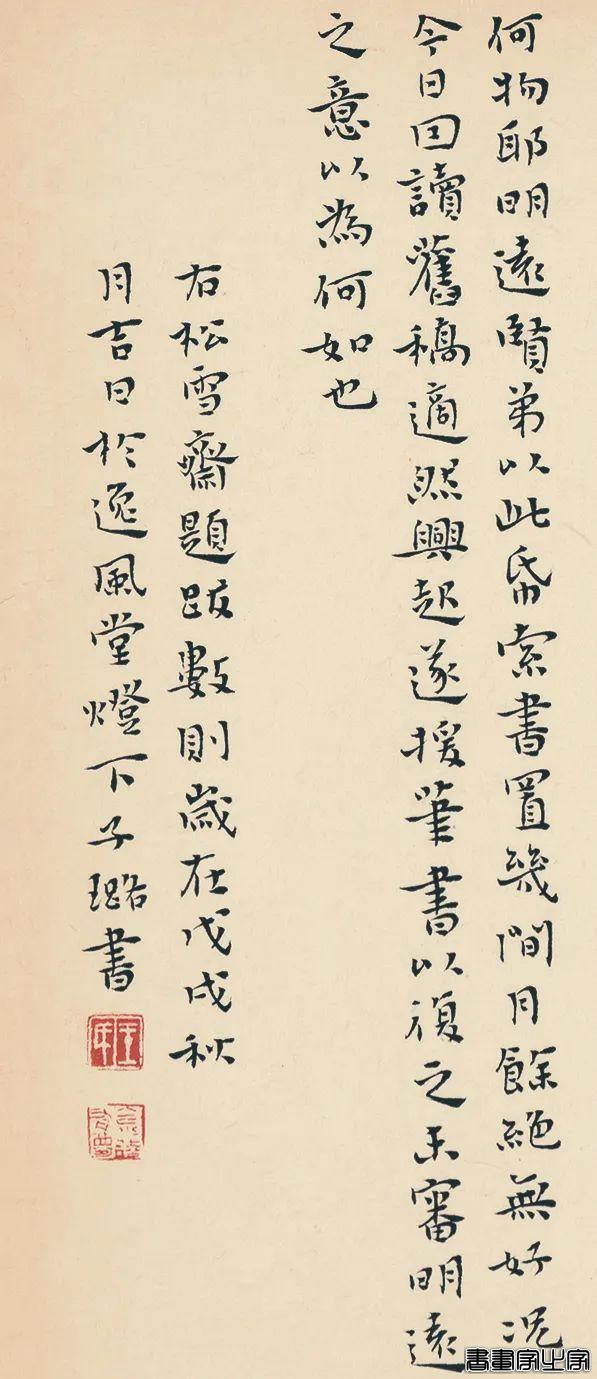 何物耶明遠賢弟以此帋索書置幾間月餘絕無好況
今日因讀舊稿適然興起遂援筆書以復之未審明遠
之意以為何如也
右松雪齋題跋數則歲在戊戌秋
月吉日於逸風堂燈下子璐書
書畫家